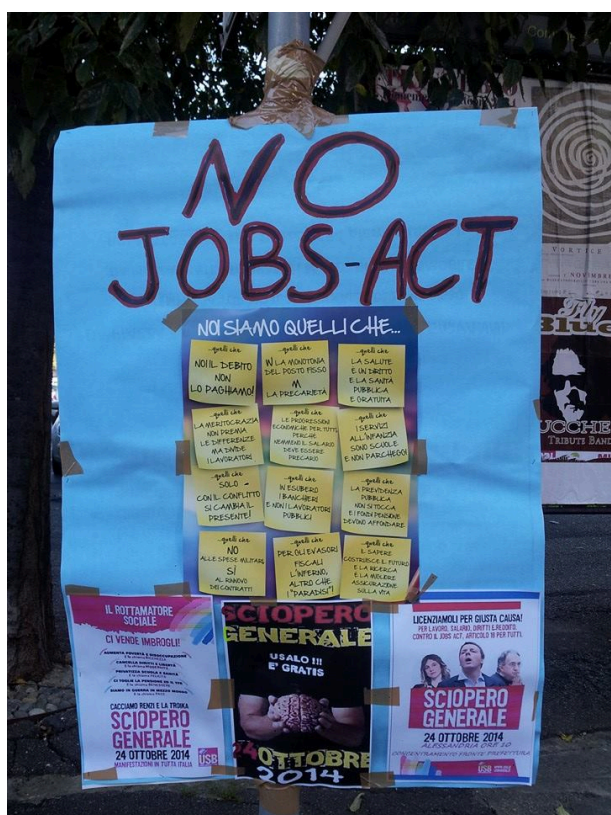 NO
JOBS-ACT
NOI SIAMO QUELLI CHE...
...quelli che
NOI IL DEBITO
NON
LO PAGHIAMO!
...quelli che
W LA MONOTONIA
DEL POSTO FISSO
M
LA PRECARIETÀ
...quelli che
LA SALUTE
È UN DIRITTO
E LA SANITÀ
PUBBLICA
E GRATUITA
...quelli che
LA MERITOCRAZIA
NON PREMIA
LE DIFFERENZE
MA DIVIDE
I LAVORATORI
...quelli che
LE PROGRESSIONI
ECONOMICHE PER TUTTI,
PERCHÉ
NEMMENO IL SALARIO
DEVE ESSERE
PRECARIO
...quelli che
I SERVIZI
ALL'INFANZIA
SONO SCUOLE
E NON PARCHEGGI
...quelli che
SOLO
CON IL CONFLITTO
SI CAMBIA IL
PRESENTE!
...quelli che
IN ESUBERO
I BANCHIERI
E NON I LAVORATORI
PUBBLICI
...quelli che
LA PREVIDENZA
PUBBLICA
NON SI TOCCA
E I FONDI PENSIONE
DEVONO AFFONDARE
...quelli che
NO
ALLE SPESE MILITARI,
SÌ
AL RINNOVO
DEI CONTRATTI
...quelli che
PER GLI EVASORI
FISCALI
L'INFERNO,
ALTRO CHE
"PARADISI"!
...quelli che
IL SAPERE
COSTRUISCE IL FUTURO
E LA RICERCA
È LA MIGLIORE
ASSICURAZIONE
SULLA VITA
IL ROTTAMATORE
SOCIALE
CI VENDE IMBROGLI!
AUMENTA POVERTÀ E DISOCCUPAZIONE
CANCELLA DIRITTI E LIBERTÀ
PRIVATIZZA SCUOLA E SANITÀ
CI TOGLIE LA PENSIONE E IL TFR
SIAMO IN GUERRA IN MEZZO MONDO
CACCIAMO RENZI E LA TROIKA
SCIOPERO
GENERALE
24 OTTOBRE 2014
MANIFESTAZIONI IN TUTTA ITALIA
USB
SCIOPERO
GENERALE
USALO !!!
E' GRATIS
24 OTTOBRE
2014
LICENZIAMOLI PER GIUSTA CAUSA!
PER LAVORO, SALARIO, DIRITTI E REDDITO
CONTRO IL JOBS ACT, ARTICOLO 18 PER TUTTI.
SCIOPERO
GENERALE
24 OTTOBRE 2014
ALESSANDRIA ORE 10
CONCENTRAMENTO FRONTE PREFETTURA
USB
VORTICE
NOVEMBRE
BLUE
UCCHE
TRIBUTE BAND